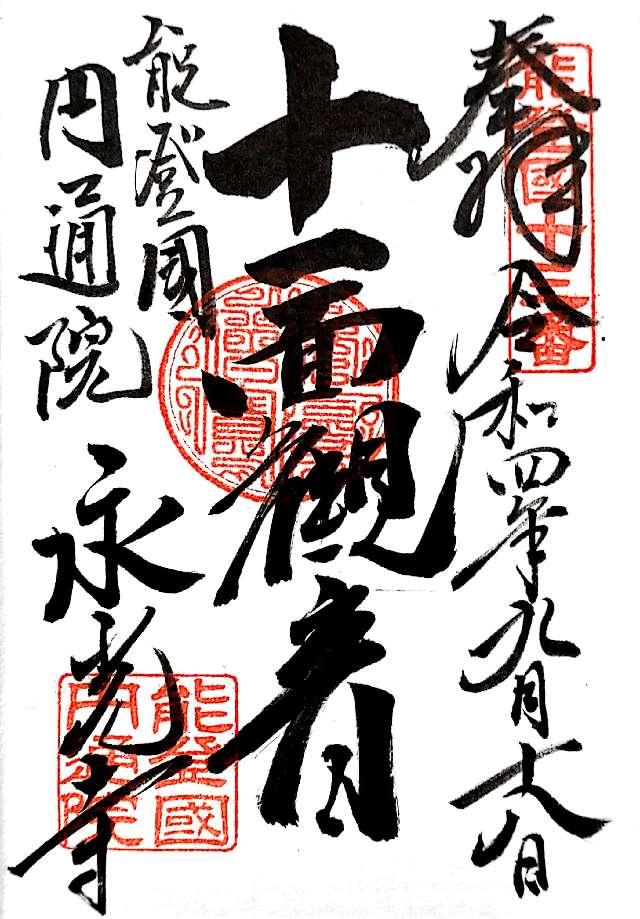 奉拝 令和四年九月十八日
能登國十三番
十一面観音
能登國
円通院 永光寺
能登國
円通院